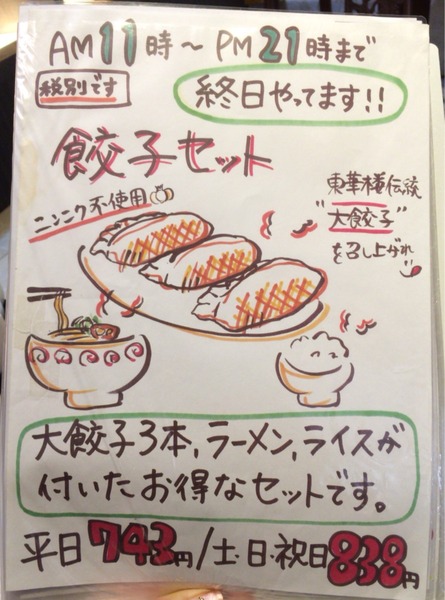 AM11時～PM21時まで
税別です
終日やってます!!
餃子セット
ニンニク不使用
東華楼伝統
"大餃子"
を召し上がれ
大餃子3本,ラーメン,ライスが
付いたお得なセットです。
平日743円/土・日・祝日838円